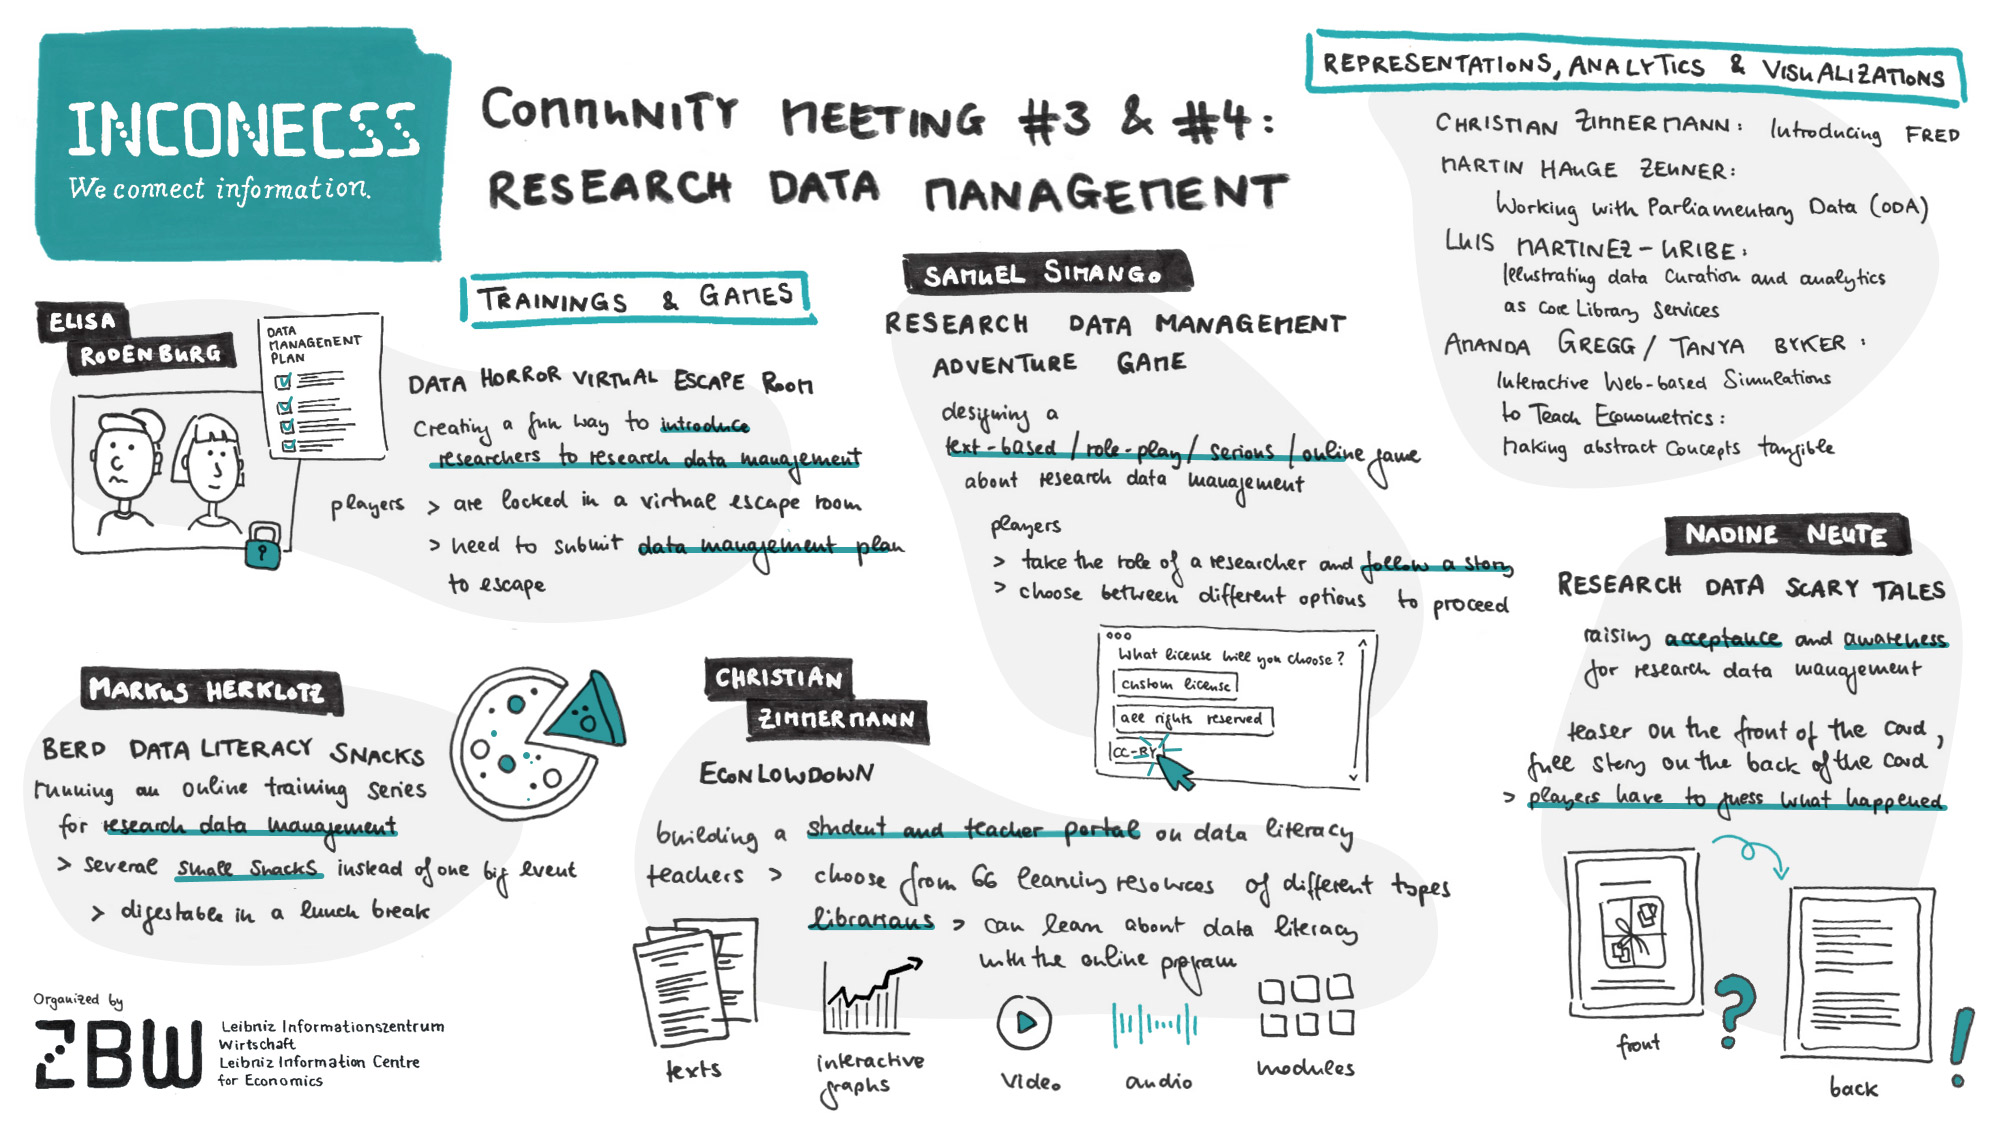 INCONECSS
We connect information.
COMMUNITY MEETING #3 & #4:
RESEARCH DATA MANAGEMENT
TRAININGS & GAMES
ELISA
RODENBURG
DATA
MANAGEMENT
PLAN
DATA HORROR VIRTUAL ESCAPE ROOM
creating a fun way to introduce
researchers to research data management
players > are locked in a virtual escape room
> need to submit data management plan
to escape
SAMUEL SIMANGO
RESEARCH DATA MANAGEMENT
ADVENTURE GAME
designing a
text-based / role-play / serious / online game
about research data management
players
> take the role of a researcher and follow a story
> choose between different options to proceed
What license will you choose?
custom license
all rights reserved
CC-BY
REPRESENTATIONS, ANALYTICS & VISUALIZATIONS
CHRISTIAN ZIMMERMANN: Introducing FRED
MARTIN HAUGE ZEUNER:
Working with Parliamentary Data (ODA)
LUIS MARTINEZ-URIBE:
Illustrating data Curation and analytics
as core Library Services
AMANDA GREGG / TANYA BYKER:
Interactive Web-based Simulations
to Teach Econometrics:
Making abstract Concepts tangible
NADINE NEUTE
RESEARCH DATA SCARY TALES
raising acceptance and awareness
for research data management
teaser on the front of the card,
full story on the back of the card
> players have to guess what happened
front
?
back
!
MARKUS HERKLOTZ
BERD DATA LITERACY SNACKS
running an online training series
for research data management
> several small snacks instead of one big event
> digestable in a lunch break
CHRISTIAN
ZIMMERMANN
ECONLOWDOWN
building a student and teacher portal on data literacy
teachers > choose from 66 learning resources of different types
librarians > can learn about data literacy
with the online program
texts
interactive
graphs
video
audio
modules
Organized by
ZBW
Leibniz Informationszentrum
Wirtschaft
Leibniz Information Centre
for Economics